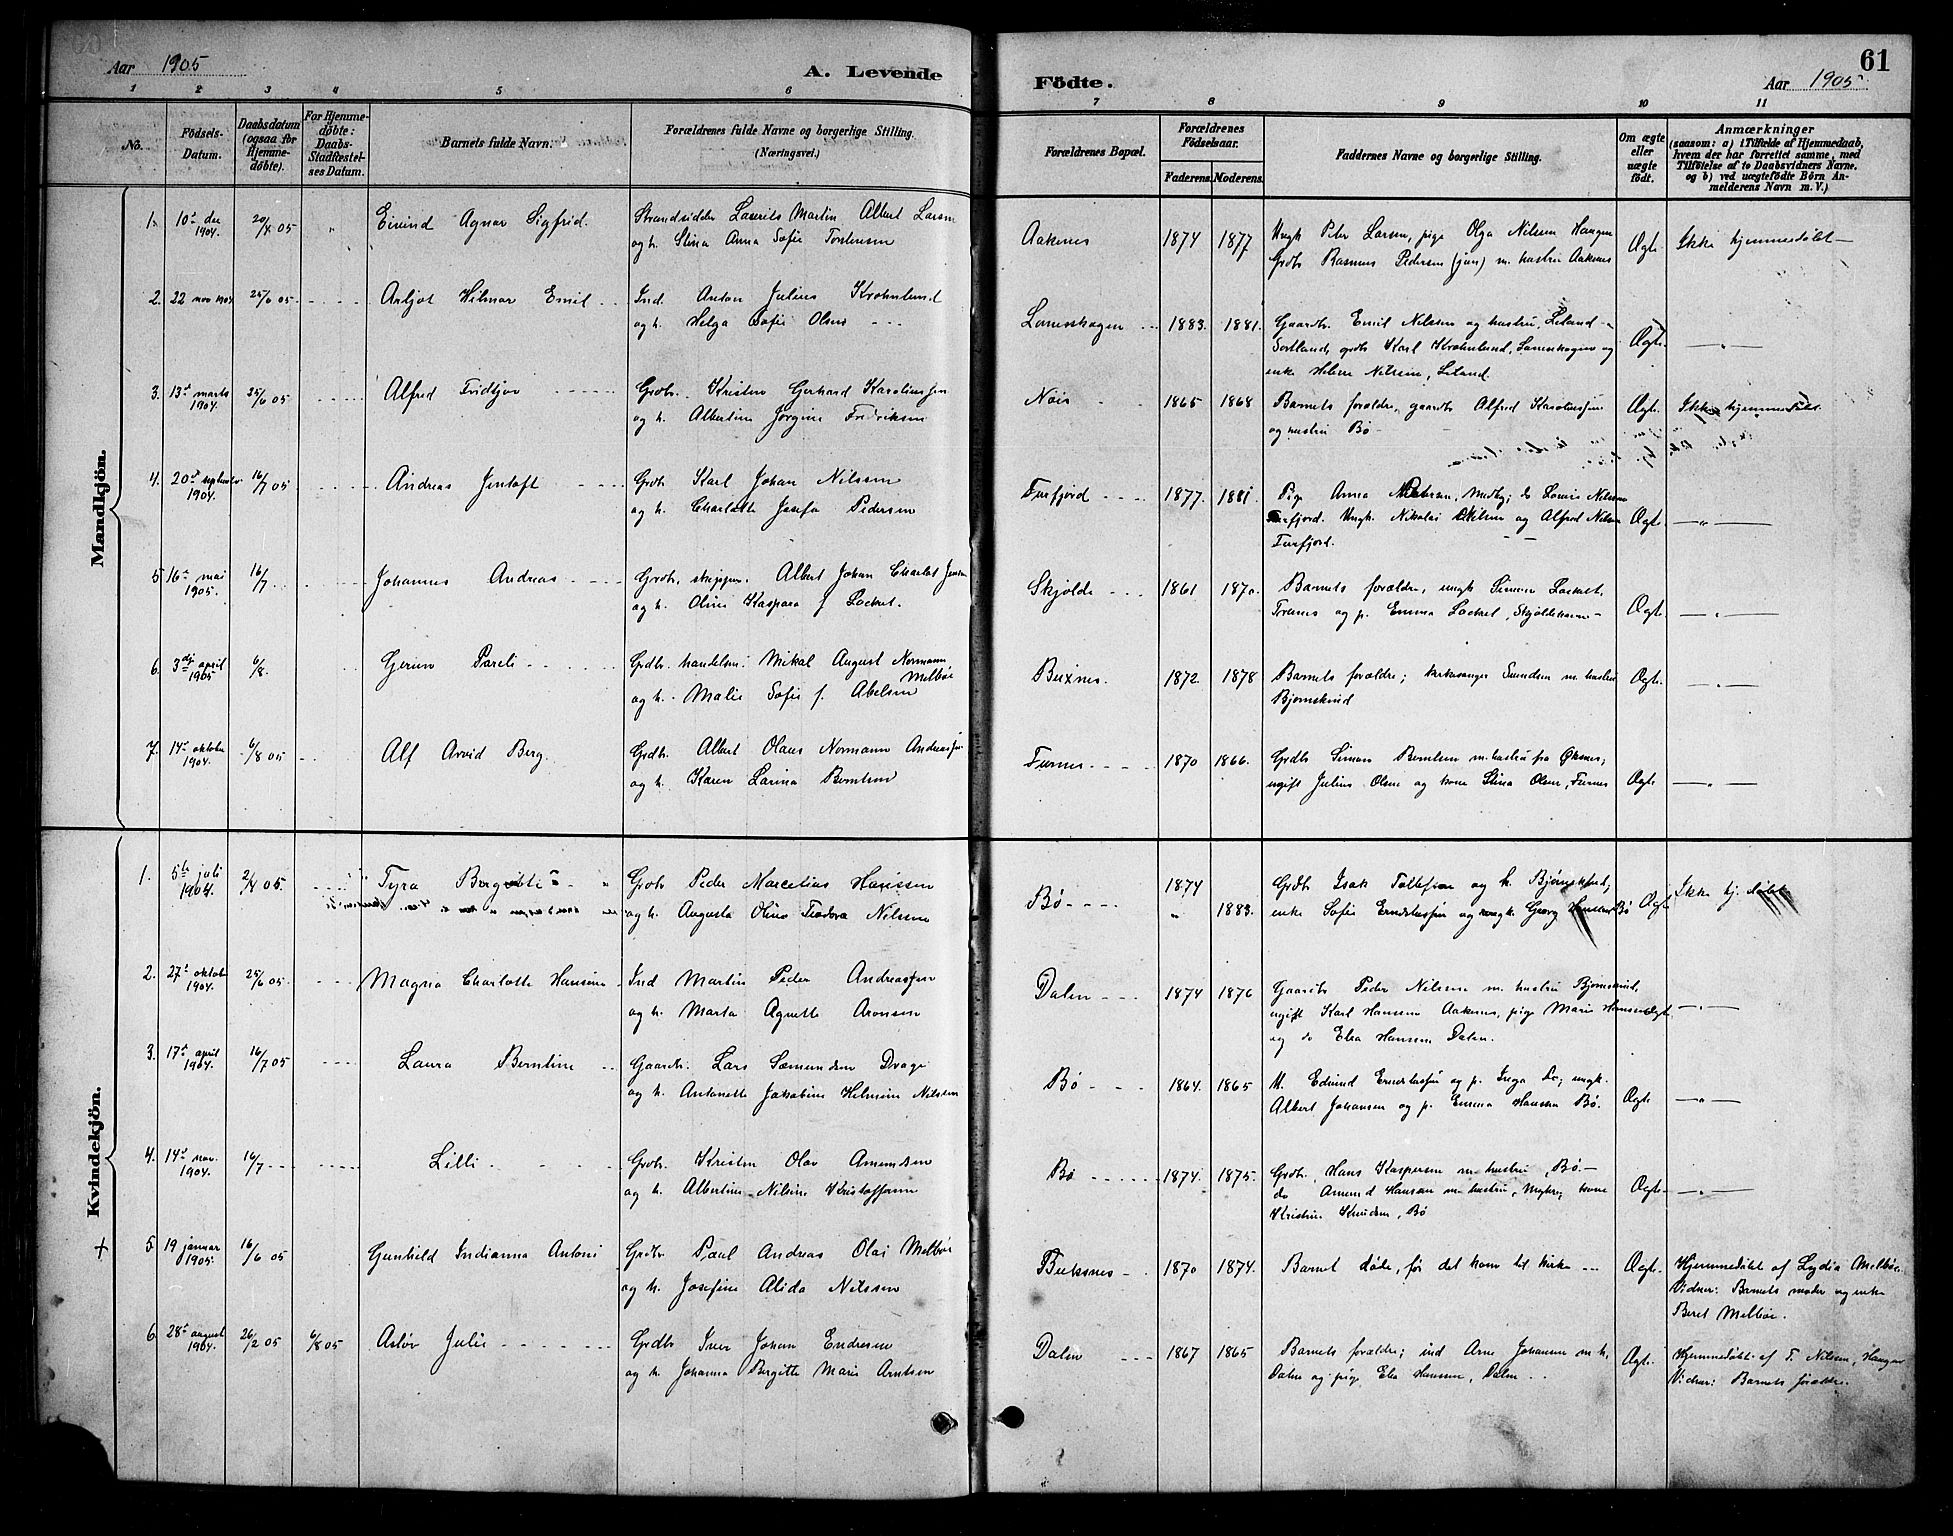 Aar 1905
A. Levende
Födte.
Aar 1905
61
1 2 3 4 5 6 7 8 9 10 11
No.
Födsels-
Datum.
Daabsdatum
(ogsaa for
Hjemme-
döbte).
For Hjemme-
döbte:
Daabs-
Stadfæstel-
ses Datum.
Barnets fulde Navn.
Forældrenes fulde Navne og borgerlige Stilling.
(Næringsvei.)
Forældrenes Bopæl.
Forældrenes
Födselsaar.
Faderens. Moderens.
Faddernes Navne og borgerlige Stilling.
Om ægte
eller
uægte
födt.
Anmærkninger
(saasom: a) i Tilfælde af Hjemmedaab,
hvem der har forrettet samme, med
Tilföielse af to Daabsvidners Navne.
og b) ved uægtefödte Börn An-
melderens Navn m. V.)
Mandkjön.
1. 10 de 1904. 20/4 05 Eivind Agnar Sigfrid. Strandsidder Martin Albert Larsen
og h. Stina Anna Sofie Torstensen
Aakenes 1874 1877 Ungk Peter Larsen, pige Olga Nilsen Haugen
Grdbr Rasmus Pedersen (jun) m. hustru Aakenes
Ægte. Ikke hjemmedøbt
2. 22 nov 1904 25/6 05 Hilmar Emil Ind. Anton Julius Krohnlund
og h. Helga Sofie Olsen
Laneskogen 1883. 1881. Gaardb. Emil Nilssen og hustru, Leland
Sortland, grdb Karl Krohnlund, Laneskogen og
enke Helene Nilsen, Leland.
Ægte.
3. 13 marts 1904. 25/6 05 Alfred Fridtjov Grdbr. Kristen Gerhard Karoliussen
og h. Albertine Jørgine Fredriksen
Nøis 1865 1868 Barnets forældre, gaardb Alfred Karoliussen
og hustru Bø
Ægte. Ikke hjemmedøbt
4. 20 september 1904. 16/7 05 Andreas Jentoft Grdb. Karl Johan Nilssen
og h. Charlotte Josefa Pedersen
Furfjord 1877. 1881. Pige Anna Petersen, Medby; do Louise Nilssen
Furfjord. Ungk. Nikolai Nilsen og Alfred Nilsen
Furfjord.
Ægte.
5 16 mai 1905. 16/7 Johannes Andreas Grdb. skipper. Albert Johan Jensen
og h. Oline Kaspara f Lockert.
Skjolde 1861 1870. Barnets forældre, ungk Simon Lockert
og p. Emma Lockert, Skjoldehavn
Ægte.
6. 3dj april 1905 6/8. Pareli Grdb. handelsm. Mikal August Normann Melbøe
og h. Malie Sofie f. Abelsen
Buxnes. 1872. 1878 Barnets forældre; kirkesanger m. hustru
Bjørnskind
Ægte.
7. 14 oktober 1904. 6/8 05 Alf Arvid Berg. Grdb. Albert Olaus Normann Andreassen
og h. Karen Larina Berntsen
Furnes 1870 1866. Grdb Simon Berntsen m. hustru fra Øksnes;
ugift Julius Olsen og kone Stina Olsen, Furnes
Ægte.
Kvindekjön.
1. 5te juli 1904. 2/4 05. Tyra Bergitte Grdb Peder Marcelius Hansen
og h. Augusta Oline Teodora Nilsen
Bø 1874 1883. Grdb. Isak Tollefsen og h. Bjørnskind,
enke Sofie Ernstassen og ungk. Georg Bø
Ægte. Ikke hj. døbt
2. 27 oktober 1904. 25/6 05 Magna Charlotte Hansine Ind Martin Peder Andreassen
og h. Marta Agnette Aronsen
Dalen 1874 1876 Gaardb Peder Nilssen m. hustru Bjørnskind,
ugift Karl Hansen Aakenes, pige Marie Hansen
og do Elea Hansen Dalen.
Ægte
3. 17 april 1904. 16/7 05 Laura Berntine Gaardb. Lars Sæmundsen
og h. Antonette Jakobine Nilsen
Bø 1864. 1865 U. Edvind Ernstassen og p. Inga Do; ungk.
Albert Johansen og p. Emma Hansen Bø.
Ægte
4. 14 nov. 1904. 16/7 Lilli Grdb. Kristen Olav Amundsen
og h. Albertine Nilsine Kristoffersen
Bø 1874. 1875. Grdb. Hans Kaspersen m. hustru, Bø.
do Amund Hansen m. hustru, kone
Kristine Knudsen, Bø
Ægte
+ 5. 19 januar 1905. 16/6 05 Gunhild Indianna Antoni Grdb. Paul Andreas Olai Melbøe
og h. Josefine Alida Nilssen
Buksnes 1870 1874. Barnet døde, før det kom til kirke
Ægte. Hjemmedøbt af Lydia Melbøe.
Vidner: Barnets moder og enke
Beret Melbøe.
6. 28 august 1904. 26/2 05 6/8 05 Aslør Julie Grdb Iver Johan Endresen
og h. Johanna Birgitte Marie Arntsen
Dalen 1867 1865 Barnets forældre; ind Arne Johansen m. h.
Dalen og pige Elea Hansen, Dalen
Ægte. Hjemmedøbt af T. Nilsen, Haugen
Vidner: Barnets forældre.